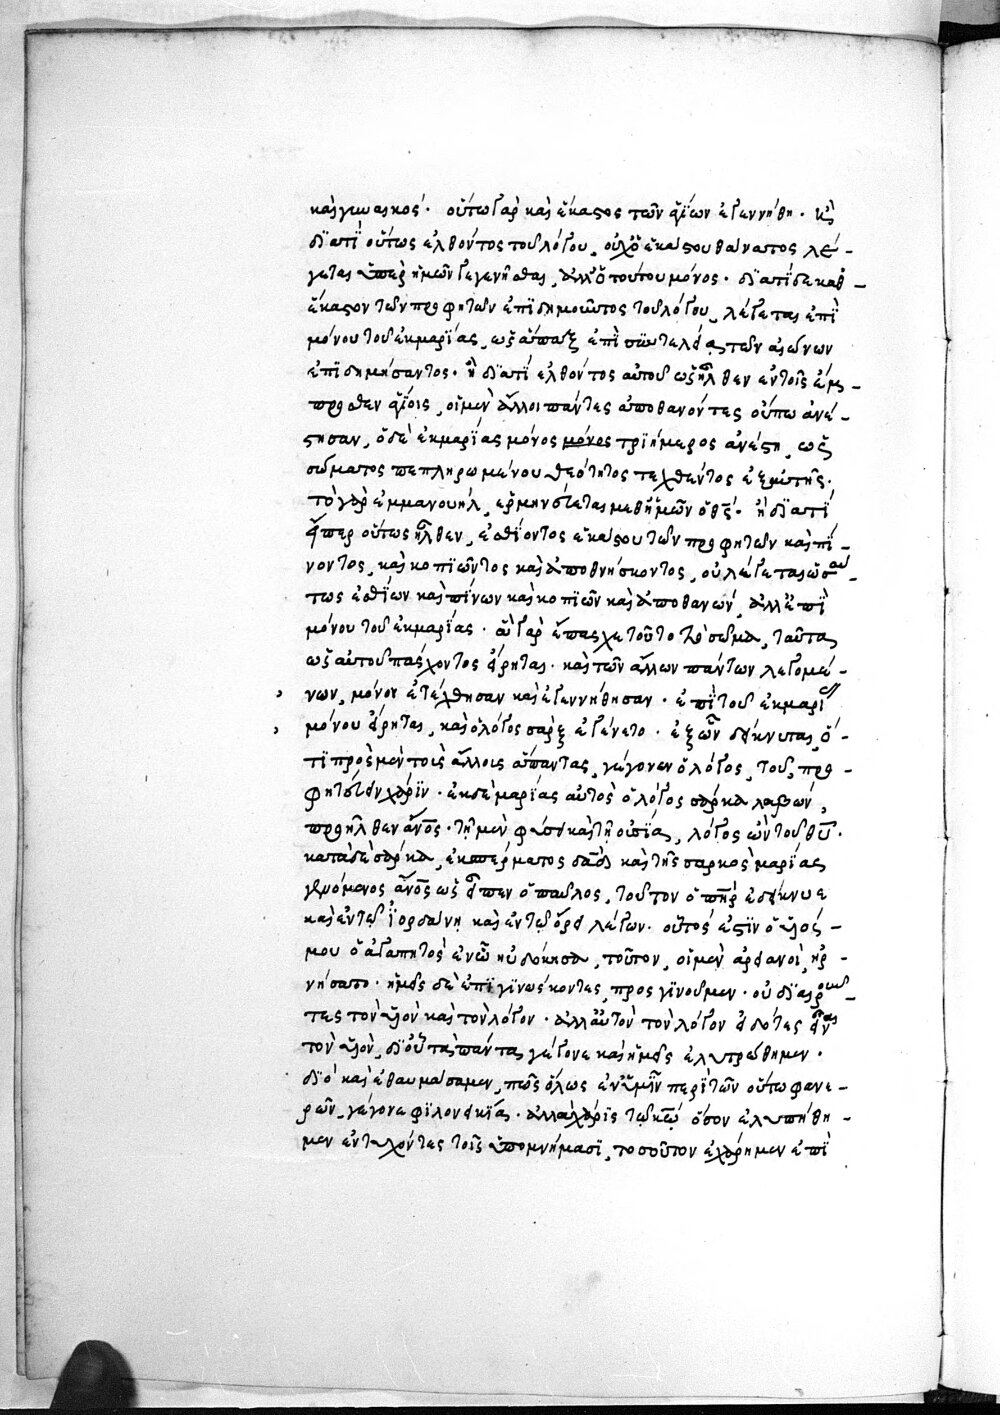 καὶ γυναικός· οὕτω γὰρ καὶ ἕκαστος τῶν ἁγίων ἐγεννήθη· ἢ
διατί οὕτως ἐλθόντος τοῦ λόγου, οὐχ ἑκάστου θάνατος λέ-
γεται ὑπὲρ ἡμῶν γεγενῆσθαι, ἀλλ' ὁ τούτου μόνος· διατί δὲ καθ'
ἕκαστον τῶν προφητῶν ἐπιδημοῦντος τοῦ λόγου, λέγεται ἐπὶ
μόνου τοῦ ἐκ μαρίας, ὡς ἅπαξ ἐπὶ συντελείᾳ τῶν αἰώνων
ἐπιδημήσαντος· ἢ διατί ἐλθόντος αὐτοῦ ὡς ἦλθεν ἐν τοῖς ἔμ-
προσθεν ἁγίοις, οἱ μὲν ἄλλοι πάντες ἀποθανόντες οὔπω ἀνέ-
στησαν, ὁ δὲ ἐκ μαρίας μόνος μόνος τριήμερος ἀνέστη, ὡς
σώματος πεπληρωμένου θεότητος τεχθέντος ἐξ αὐτῆς·
τὸ γὰρ ἐμμανουήλ, ἑρμηνεύεται μεθ' ἡμῶν ὁ θς· ἢ διατί
εἴπερ οὕτως ἦλθεν, ἐσθίοντος ἑκάστου τῶν προφητῶν καὶ πί-
νοντος, καὶ κοπιῶντος καὶ ἀποθνήσκοντος, οὐ λέγεται ὡς αὐ-
τὸς ἐσθίων καὶ πίνων καὶ κοπιῶν καὶ ἀποθανών, ἀλλ' ἐπὶ
μόνου τοῦ ἐκ μαρίας· ἃ γὰρ ἔπασχε τοῦτο τὸ σῶμα, ταῦτα
ὡς αὐτοῦ πάσχοντος εἴρηται· καὶ τῶν ἄλλων πάντων λεγομέ-
νων, μόνον ἐτέχθησαν καὶ ἐγεννήθησαν· ἐπὶ τοῦ ἐκ μαρίας
μόνου εἴρηται, καὶ ὁ λόγος σὰρξ ἐγένετο· ἐξ ὧν δείκνυται, ὅ-
τι πρὸς μὲν τοὺς ἄλλους ἅπαντας, γέγονεν ὁ λόγος, τοῦ προ-
φητεύειν χάριν· ἐκ δὲ μαρίας αὐτὸς ὁ λόγος σάρκα λαβών,
προῆλθεν ἄνος· τῇ μὲν φύσει καὶ τῇ οὐσίᾳ, λόγος ὢν τοῦ θυ·
κατὰ δὲ σάρκα, ἐκ σπέρματος δαδ καὶ τῆς σαρκὸς μαρίας
γενόμενος ἄνος ὡς εἶπεν ὁ παῦλος, τοῦτον ὁ πηρ ἐδείκνυε
καὶ ἐν τῷ ἰορδάνῃ καὶ ἐν τῷ ὄρει λέγων· οὗτός ἐστιν ὁ υἱός
μου ὁ ἀγαπητὸς ἐν ᾧ ηὐδόκησα, τοῦτον, οἱ μὲν ἀρειανοὶ, ἠρ-
νήσαντο· ἡμεῖς δὲ ἐπιγινώσκοντες, προσκυνοῦμεν· οὐ διαιροῦν-
τες τὸν υἱὸν καὶ τὸν λόγον· ἀλλ' αὐτὸν τὸν λόγον εἰδότες εἶναι
τὸν υἱὸν, δι' οὗ τὰ πάντα γέγονε καὶ ἡμεῖς ἐλυτρώθημεν·
διὸ καὶ ἐθαυμάσαμεν, πῶς ὅλως ἐν ὑμῖν περὶ τῶν οὕτω φανε-
ρῶν, γέγονε φιλονεικία· ἀλλὰ χάρις τῷ κω ὅσον ἐλυπήθη-
μεν ἐντυχόντες τοῖς ὑπομνήμασι, τοσοῦτον ἐχάρημεν ἐπὶ